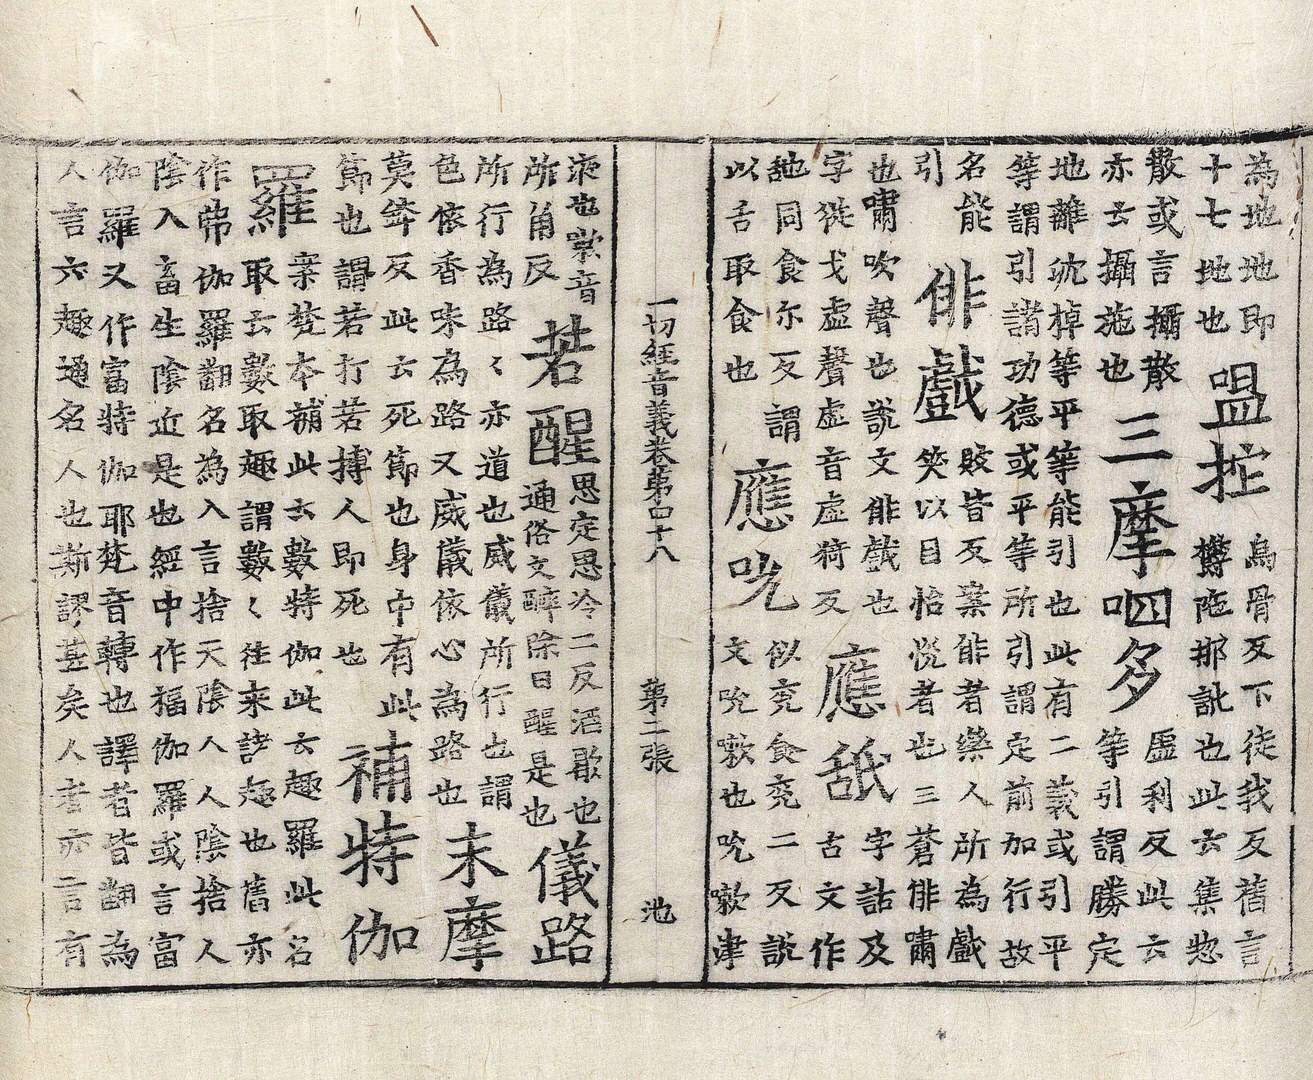 為地地即
十七地也
嗢拕
烏骨反下徒我反舊言
鬱陁那訛也此云集惣
散或言攝散
亦云攝施也
三摩呬多
虛利反此云
等引謂勝定
地離沈掉等平等能引也此有二義或引平
等謂引諸功德或平等所引謂定前加行故
名能
引
俳戲
敗皆反案俳者樂人所為戲
笑以目怡悅者也三蒼俳嘯
也嘯吹聲也說文俳戲也
字從戈虛聲虛音虛猗反
應舐
字詁及
古文作
同食尒反謂
以舌取食也
應吮
似兖食兖二反說
文吮欶也吮欶津
一切經音義卷第四十八　第二張　池
液也欶音
所角反
若醒
思定思冷二反酒歇也
通俗文醉除曰醒是也
儀路
所行為路々亦道也威儀所行也謂
色依香味為路又威儀依心為路也
末摩
莫鉢反此云死節也身中有此
節也謂若打若搏人即死也
補特伽
羅
案梵本補此云數特伽此云趣羅此名
取云數取趣謂數々往來諸趣也舊亦
作弗伽羅翻名為入言捨天陰人人陰捨人
陰入畜生陰近是也經中作福伽羅或言富
伽羅又作富特伽耶梵音轉也譯者皆翻為
人言六趣通名人也斯謬甚矣人者亦言有